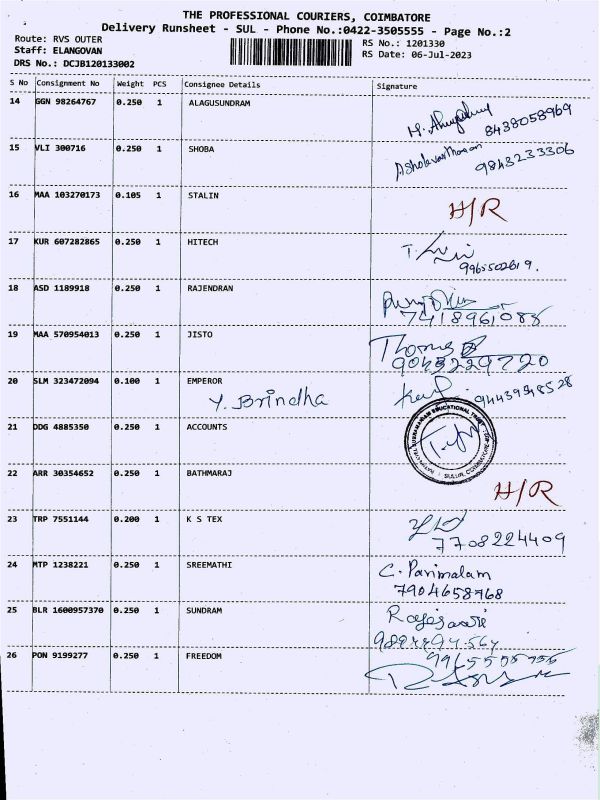 THE PROFESSIONAL COURIERS, COIMBATORE
Delivery Runsheet - SUL - Phone No.:0422-3505555 - Page No.:2
Route: RVS OUTER
Staff: ELANGOVAN
DRS No.: DCJB120133002
RS No.: 1201330
RS Date: 06-Jul-2023
S No Consignment No Weight PCS Consignee Details Signature
14 GGN 98264767 0.250 1 ALAGUSUNDRAM
8438058969
15 VLI 300716 0.250 1 SHOBA
9843233306
16 MAA 103270173 0.105 1 STALIN H/R
17 KUR 607282865 0.250 1 HITECH
18 ASD 1189918 0.250 1 RAJENDRAN
7418961088
19 MAA 570954013 0.250 1 JISTO
20 SLM 323472094 0.100 1 EMPEROR
Y. Brindha
21 DDG 4885350 0.250 1 ACCOUNTS
22 ARR 30354652 0.250 1 BATHMARAJ H/R
23 TRP 7551144 0.200 1 K S TEX
7708224409
24 MTP 1238221 0.250 1 SREEMATHI C. Parimalam
7904658768
25 BLR 1600957370 0.250 1 SUNDRAM
26 PON 9199277 0.250 1 FREEDOM